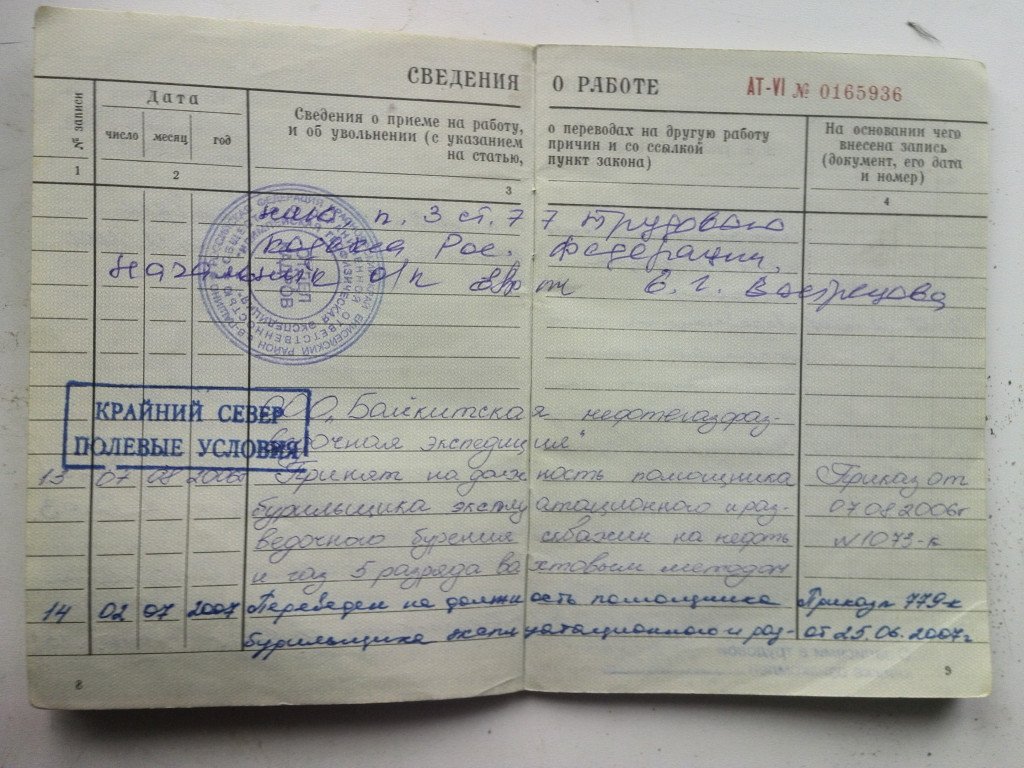 СВЕДЕНИЯ О РАБОТЕ АТ-VI № 0165936
№ записи
Дата
число месяц год
Сведения о приеме на работу,
и об увольнении (с указанием
на статью,
о переводах на другую работу
причин и со ссылкой
пункт закона)
На основании чего
внесена запись
(документ, его дата
и номер)
1 2 3 4
п. 3 ст. 77 Трудового
кодекса Рос. Федерации.
Начальник о/к В. Г. Вострецова
КРАЙНИЙ СЕВЕР
ПОЛЕВЫЕ УСЛОВИЯ
ООО „Байкитская нефтегазораз-
ведочная экспедиция"
13 07 08 2006 Принят на должность помощника Приказ от
бурильщика эксплуатационного и раз- 07.08.2006г
ведочного бурения скважин на нефть №1073-к
и газ 5 разряда вахтовым методом
14 02 07 2007 Переведен на должность помощника Приказ 779-к
бурильщика эксплуатационного и раз- от 25.06.2007г
8 9